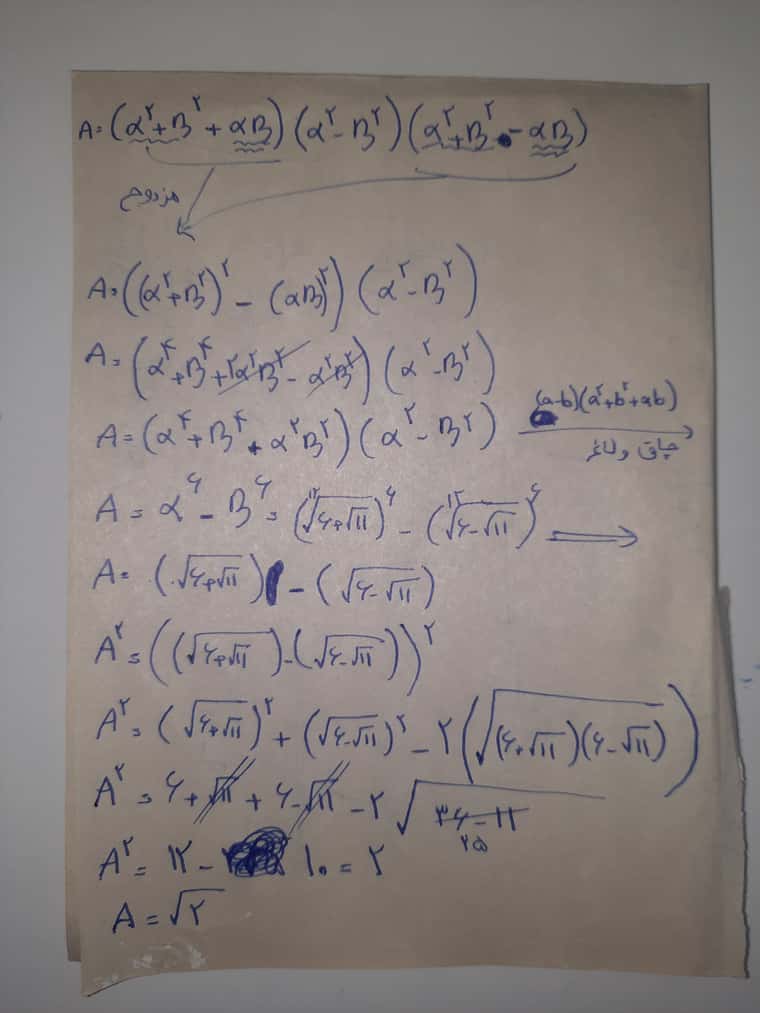 A = (α^۲ + β^۲ + αβ) (α^۲ - β^۲) (α^۲ + β^۲ - αβ)
مزدوج
A = ((α^۲ + β^۲)^۲ - (αβ)^۲) (α^۲ - β^۲)
A = (α^۴ + β^۴ + ۲α^۲β^۲ - α^۲β^۲) (α^۲ - β^۲)
A = (α^۴ + β^۴ + α^۲β^۲) (α^۲ - β^۲) (a-b)(a^۲+b^۲+ab)
چاق و لاغر
A = α^۶ - β^۶ = (^{۱۲}√(۶+√۱۱))^۶ - (^{۱۲}√(۶-√۱۱))^۶ ⟹
A = (√(۶+√۱۱)) - (√(۶-√۱۱))
A^۲ = ((√(۶+√۱۱)) - (√(۶-√۱۱)))^۲
A^۲ = (√(۶+√۱۱))^۲ + (√(۶-√۱۱))^۲ - ۲(√((۶+√۱۱)(۶-√۱۱)))
A^۲ = ۶ + √۱۱ + ۶ - √۱۱ - ۲√(۳۶-۱۱)
۲۵
A^۲ = ۱۲ - ۱۰ = ۲
A = √۲